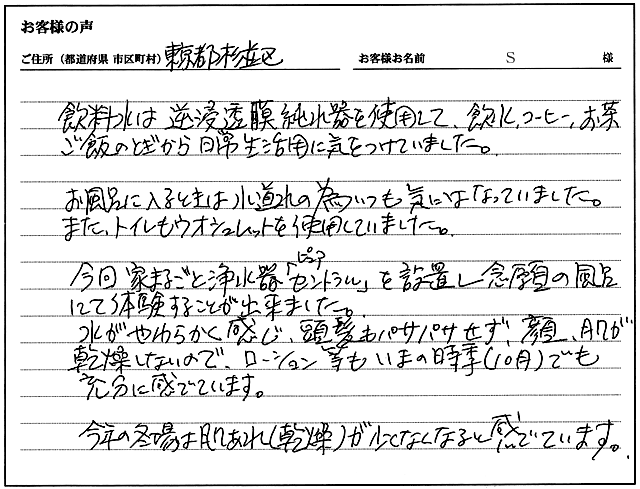 お客様の声
ご住所（都道府県 市区町村）東京都杉並区 お客様お名前 S 様
飲料水は逆浸透膜純水器を使用して、飲水、コーヒー、お茶
ご飯のとぎから日常生活用に気をつけていました。
お風呂に入るときは水道水の為いつも気にはなっていました。
また、トイレもウオシュレットを使用していました。
今回家まるごと浄水器「ピュアセントラル」を設置し念願の風呂
にて体験することが出来ました。
水がやわらかく感じ、頭髪もパサパサせず、顔、肌が
乾燥しないので、ローション等もいまの時季(10月)でも
充分に感じています。
今年の冬場は肌あれ(乾燥)が少くなくなると感じています。